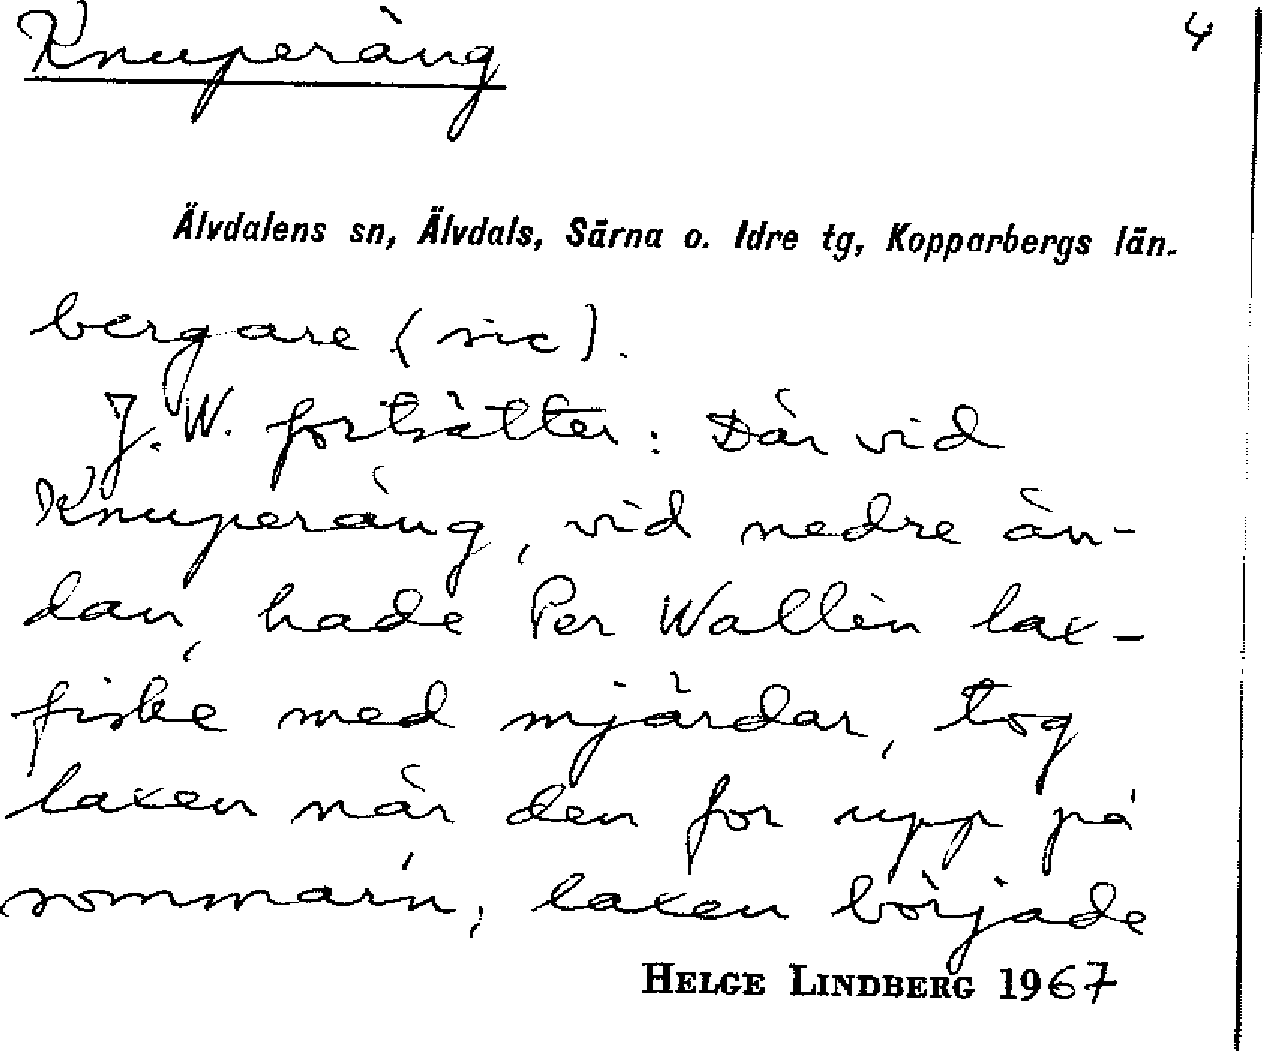 Knuperäng 4
Älvdalens sn, Älvdals, Särna o. Idre tg, Kopparbergs län.
bergare (sic).
J.W. fortsätter: Där vid
Knuperäng, vid nedre än-
dan, hade Per Wallén lax-
fiske med mjärdar, tog
laxen när den for upp på
sommarn, laxen började
HELGE LINDBERG 1967